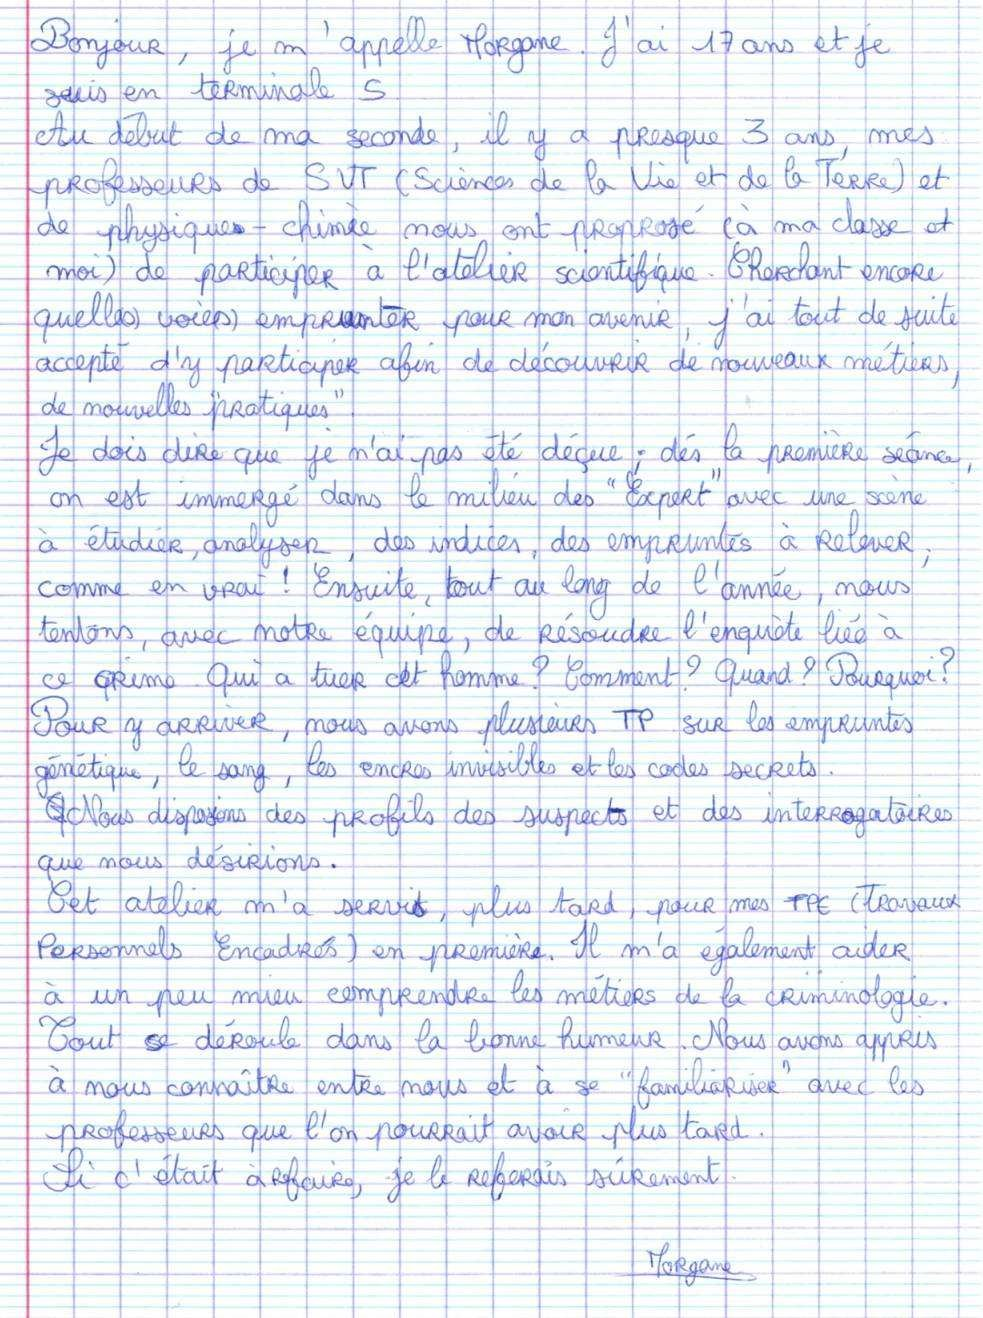 Bonjour, je m'appelle Morgane. J'ai 17 ans et je
suis en terminale S.
Au début de ma seconde, il y a presque 3 ans, mes
professeurs de SVT (Sciences de la Vie et de la Terre) et
de physique-chimie nous ont proprosé (à ma classe et
moi) de participer à l'atelier scientifique. Cherchant encore
quelle(s) voie(s) emprunter pour mon avenir, j'ai tout de suite
accepté d'y participer afin de découvrir de nouveaux métiers,
de nouvelles "pratiques".
Je dois dire que je n'ai pas été déçue ; dés la première séance,
on est immergé dans le milieu des "Expert" avec une scène
à étudier, analyser, des indices, des empruntes à relever,
comme en vrai ! Ensuite, tout au long de l'année, nous
tentons, avec notre équipe, de résoudre l'enquête liée à
ce crime. Qui a tuer cet homme ? Comment ? Quand ? Pourquoi ?
Pour y arriver, nous avons plusieurs TP sur les empruntes
génétique, le sang, les encres invisibles et les codes secrets.
Nous disposions des profils des suspects et des interrogatoires
que nous désirions.
Cet atelier m'a servit, plus tard, pour mes TPE (Travaux
Personnels Encadrés) en première. Il m'a également aider
à un peu mieu comprendre les métiers de la criminologie.
Tout se déroule dans la bonne humeur. Nous avons appris
à nous connaître entre nous et à se "familiariser" avec les
professeurs que l'on pourrait avoir plus tard.
Si c'était à refaire, je le referais sûrement.
Morgane